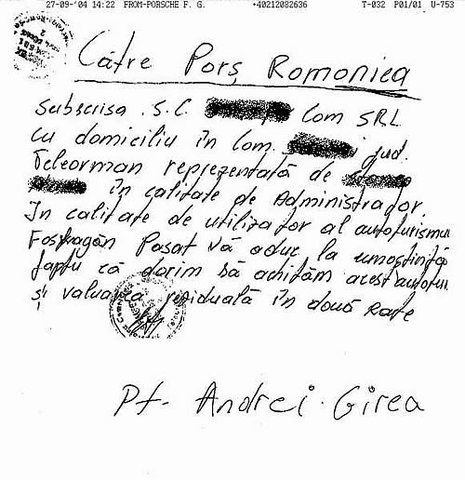 27-09-'04 14:22 FROM-PORSCHE F. G. +40212082636 T-032 P01/01 U-753
Către Porș Romoniea
Subscrisa S.C. Com SRL
cu domiciliu în Com. jud.
Teleorman reprezentată de
în calitate de Administrador
În calitate de utilizator al autoturismu
Fosfagăn Pasat Vă aduc la umoștință
faptu că dorim să achităm acest autotur
și valuarea reziduală în două rate
Pt. Andrei Girea